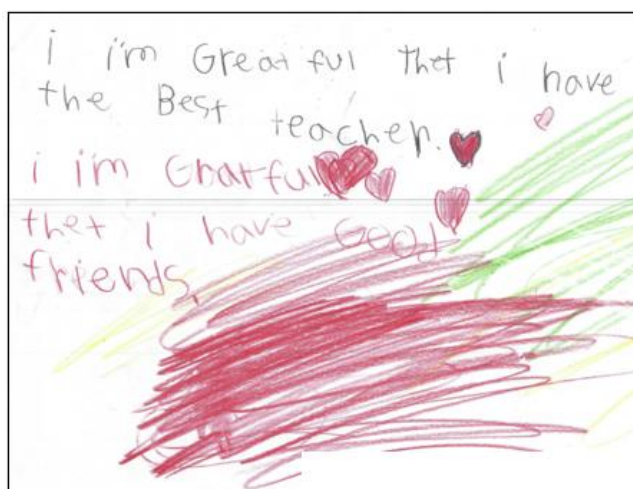 i i'm Greatful thet i have
the Best teacher.
i i'm Gratful
thet i have Good
friends.